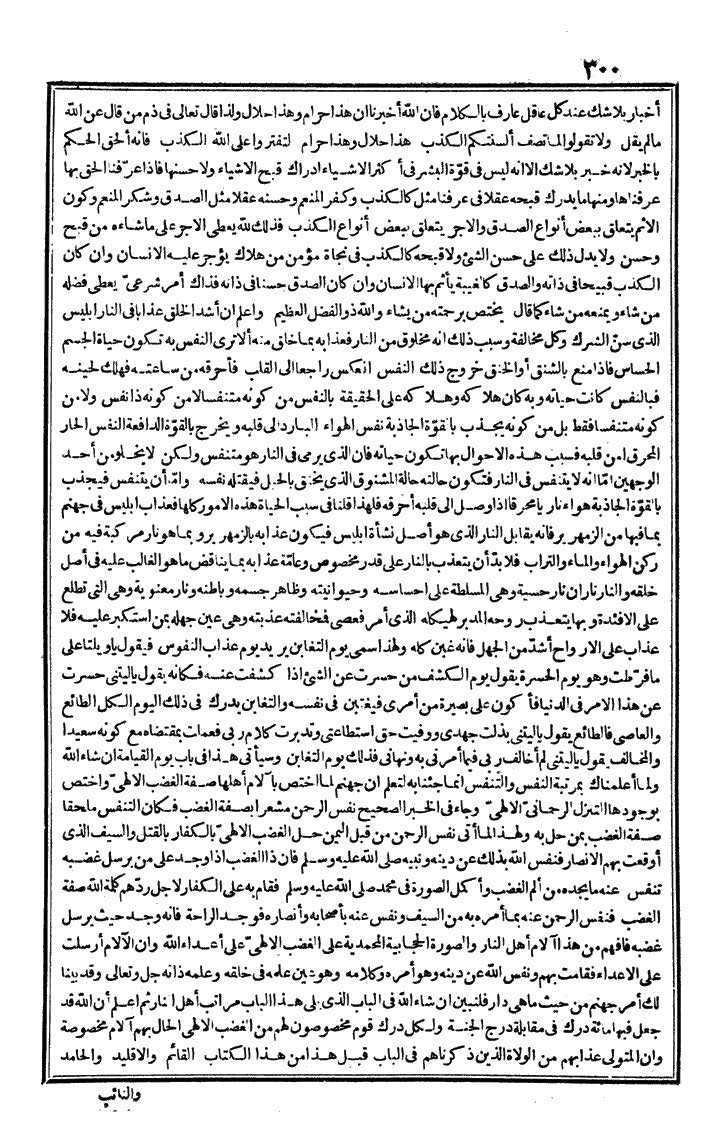 ٣٠٠
أخبار بلاشك عند كل عاقل عارف بالكلام فان الله أخبرنا ان هذا حرام وهذا حلال ولذا قال تعالى فى ذم من قال عن الله
مالم يقل ولا تقولوا لما تصف ألسنتكم الكذب هذا حلال وهذا حرام لتفتروا على الله الكذب فانه ألحق الحكم
بالخبر لانه خبر بلاشك الا انه ليس فى قوّة البشر فى أكثر الاشياء ادراك قبح الاشياء ولا حسنها فاذا عرّفنا الحق بها
عرفناها ومنها ما يدرك قبحه عقلا فى عرفنا مثل كالكذب وكفر المنعم وحسنه عقلا مثل الصدق وشكر المنعم وكون
الاثم يتعلق ببعض أنواع الصدق والاجر يتعلق ببعض أنواع الكذب فذلك لله يعطى الاجر على ما شاءه من قبح
وحسن ولا يدل ذلك على حسن الشئ ولا قبحه كالكذب فى نجاة مؤمن من هلاك يؤجر عليه الانسان وان كان
الكذب قبيحا فى ذاته والصدق كالغيبة يأثم بها الانسان وان كان الصدق حسنا فى ذاته فذاك أمر شرعىّ يعطى فضله
من شاء ويمنعه من شاء كما قال يختص برحمته من يشاء والله ذو الفضل العظيم واعلم ان أشد الخلق عذابا فى النار ابليس
الذى سنّ الشرك وكل مخالفة وسبب ذلك انه مخلوق من النار فعذابه بما خلق منه ألا ترى النفس به تكون حياة الجسم
الحساس فاذا منع بالشنق أو الخنق خروج ذلك النفس انعكس راجعا الى القلب فأحرقه من ساعته فهلك لحينه
فبالنفس كانت حياته وبه كان هلاكه وهلاكه على الحقيقة بالنفس من كونه متنفسا لا من كونه ذا نفس ولا من
كونه متنفسا فقط بل من كونه يجذب بالقوّة الجاذبة نفس الهواء البارد الى قلبه ويخرج بالقوّة الدافعة النفس الحار
المحرق من قلبه فسبب هذه الاحوال بها تكون حياته فان الذى يرمى فى النار هو متنفس ولكن لا يخلو من أحد
الوجهين امّا انه لا يتنفس فى النار فتكون حالته حالة المشنوق الذى يخنق بالحبل فيقتله نفسه وامّا أن يتنفس فيجذب
بالقوّة الجاذبة هواء ناريا محرقا اذا وصل الى قلبه أحرقه فلهذا قلنا فى سبب الحياة هذه الامور كلها فعذاب ابليس فى جهنم
بما فيها من الزمهرير فانه يقابل النار الذى هو أصل نشأة ابليس فيكون عذابه بالزمهرير وبما هو نار مركبة فيه من
ركن الهواء والماء والتراب فلا بدّ أن يتعذب بالنار على قدر مخصوص وعامّة عذابه بما يناقض ما هو الغالب عليه فى أصل
خلقه والنار ناران نار حسية وهى المسلطة على احساسه وحيوانيته وظاهر جسمه وباطنه ونار معنوية وهى التى تطلع
على الافئدة وبها يتعذب روحه المدبر لهيكله الذى أمر فعصى فمخالفته عذبته وهى عين جهله بمن استكبر عليه فلا
عذاب على الارواح أشدّ من الجهل فانه غبن كله ولهذا سمى يوم التغابن يريد يوم عذاب النفوس فيقول ياويلتا على
ما فرّطت وهو يوم الحسرة يقول يوم الكشف من حسرت عن الشئ اذا كشفت عنه فكانه يقول ياليتنى حسرت
عن هذا الامر فى الدنيا فأكون على بصيرة من أمرى فيغتبن فى نفسه والتغابن يدرك فى ذلك اليوم الكل الطائع
والعاصى فالطائع يقول ياليتنى بذلت جهدى ووفيت حق استطاعتى وتدبرت كلام ربى فعملت بمقتضاه مع كونه سعيدا
والمخالف يقول ياليتنى لم أخالف ربى فيما أمرنى به ونهانى فذلك يوم التغابن وسيأتى هذا فى باب يوم القيامة ان شاء الله
ولما أعلمناك بمرتبة النفس والتنفس انما جئنا به لتعلم ان جهنم لما اختص بآلام أهلها صفة الغضب الالهىّ واختص
بوجودها التنزل الرحمانىّ الالهىّ وجاء فى الخبر الصحيح نفس الرحمن مشعرا بصفة الغضب فكان التنفس ملحقا
صفة الغضب بمن حل به ولهذا لما أتى نفس الرحمن من قبل اليمن حل الغضب الالهىّ بالكفار بالقتل والسيف الذى
أوقعت بهم الانصار فنفس الله بذلك عن دينه ونبيه صلى الله عليه وسلم فان ذا الغضب اذا وجد على من يرسل غضبه
تنفس عنه ما يجده من ألم الغضب وأكمل الصورة فى محمد صلى الله عليه وسلم فقام به على الكفار لاجل ردّهم كلمة الله صفة
الغضب فنفس الرحمن عنه بما أمره به من السيف ونفس عنه بأصحابه وأنصاره فوجد الراحة فانه وجد حيث يرسل
غضبه فافهم من هذا آلام أهل النار والصورة الحجابية المحمدية على الغضب الالهىّ على أعداء الله وان الآلام أرسلت
على الاعداء فقامت بهم ونفس الله عن دينه وهو أمره وكلامه وهو عين علمه فى خلقه وعلمه ذاته جل وتعالى وقد بينا
لك أمر جهنم من حيث ما هى دار فلنبين ان شاء الله فى الباب الذى يلى هذا الباب مراتب أهل النار ثم اعلم أن الله قد
جعل فيها مائة درك فى مقابلة درج الجنة ولكل درك قوم مخصوصون لهم من الغضب الالهى الحال بهم آلام مخصوصة
وان المتولى عذابهم من الولاة الذين ذكرناهم فى الباب قبل هذا من هذا الكتاب القائم والاقليد والحامد
والنائب